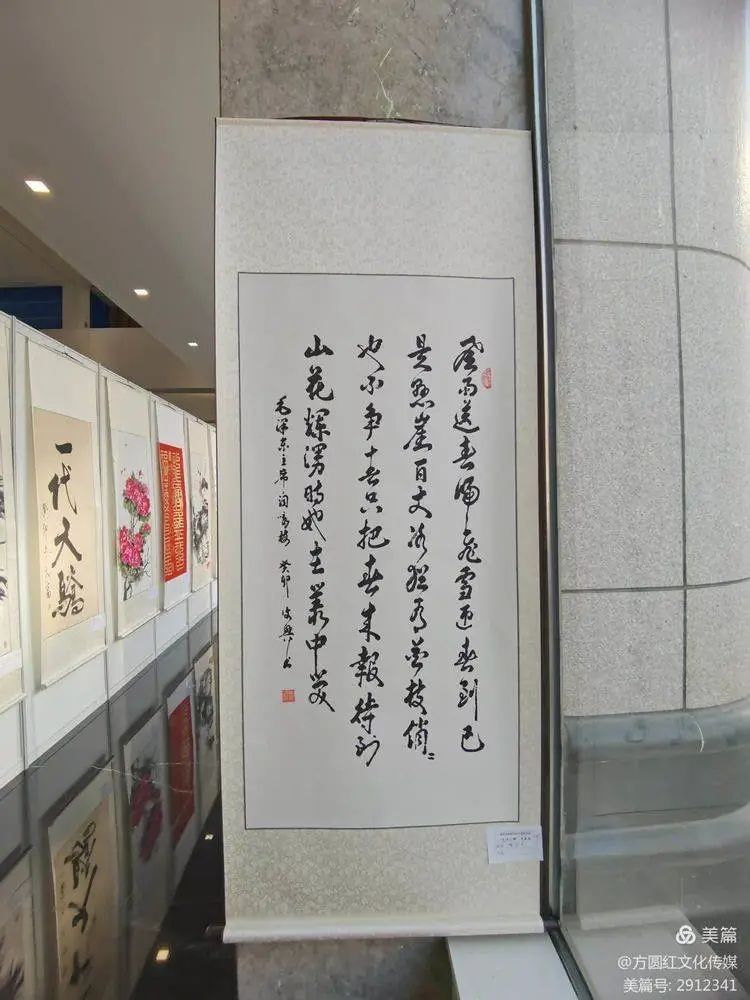 風雨送春歸飛雪迎春到已
是懸崖百丈冰猶有花枝俏〻
也不争春只把春來報待到
山花爛漫時她在叢中笑
毛泽东主席词咏梅 癸卯
一代天驕
美篇
@方圆红文化传媒
美篇号: 2912341